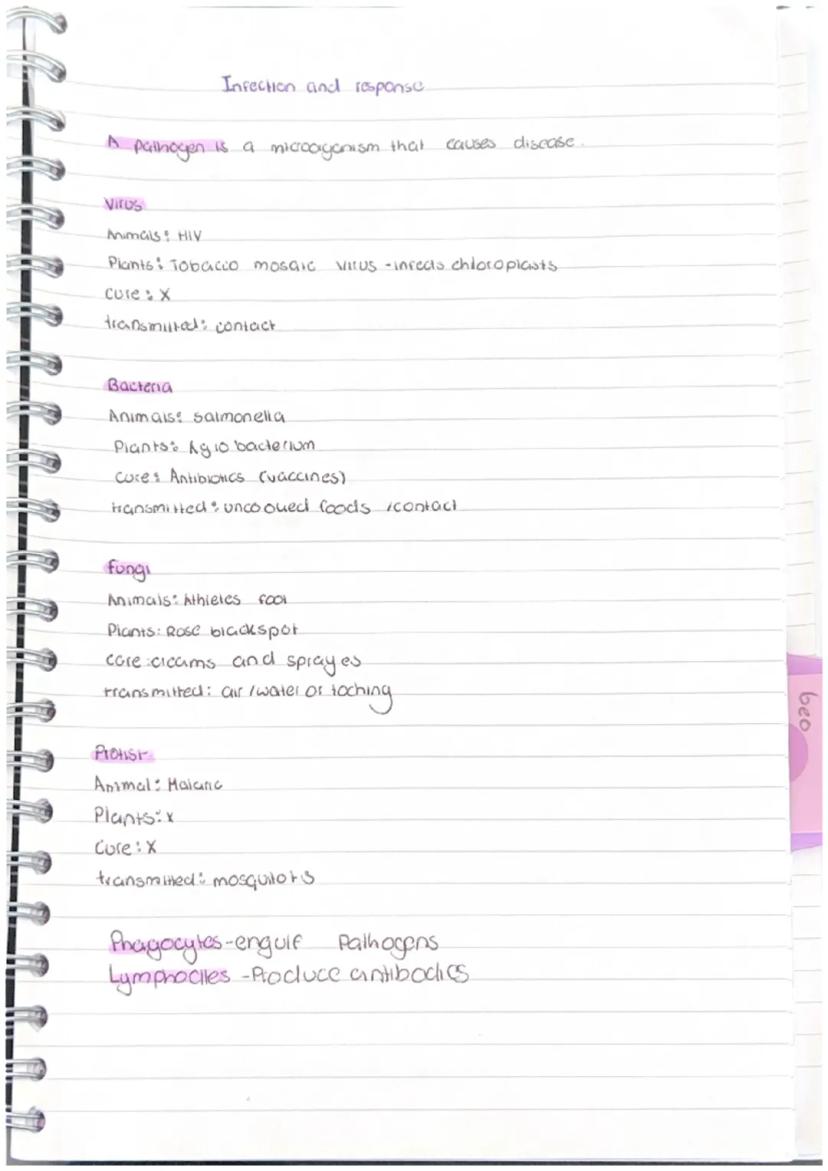 Infection and response
A pathogen is a microoganism that causes disease.
Virus
Animals: HIV
Plants: Tobacco mosaic virus - infects chloroplasts
cure: X
transmitted: contact
Bacteria
Animals: salmonella
Plants: Agro bacterium
cure: Antibiotics (vaccines)
transmitted: uncooued foods /contact
fungi
Animals: Athletes foot
Plants: Rose blackspot
care: creams and sprayes
transmitted: air /water or toching
Protist
Animal: Malaria
Plants: x
Cure: X
transmitted: mosquitors
Phagocytes - engulf Pathogens
Lymphocites - Produce antibodies
geo